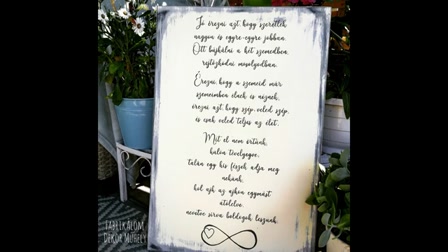 Jó érezni azt hogy szeretlek
nagyon és egyre-egyre jobban.
Ott bujkálni a két szemedben,
rejtőzködni mosolyodban.
Érezni, hogy a szemeid már
szemeimben élnek és néznek,
érezni azt, hogy szép, veled szép,
és csak veled teljes az élet.
Mit el nem írtunk,
tévelyegve,
talán egy kis fészek adja meg
nekünk,
hol ajk az ajkon egymást
átölelve,
nevetve sírva boldogok leszünk.
FABLIKÁLOM
DEKOR MŰHELY